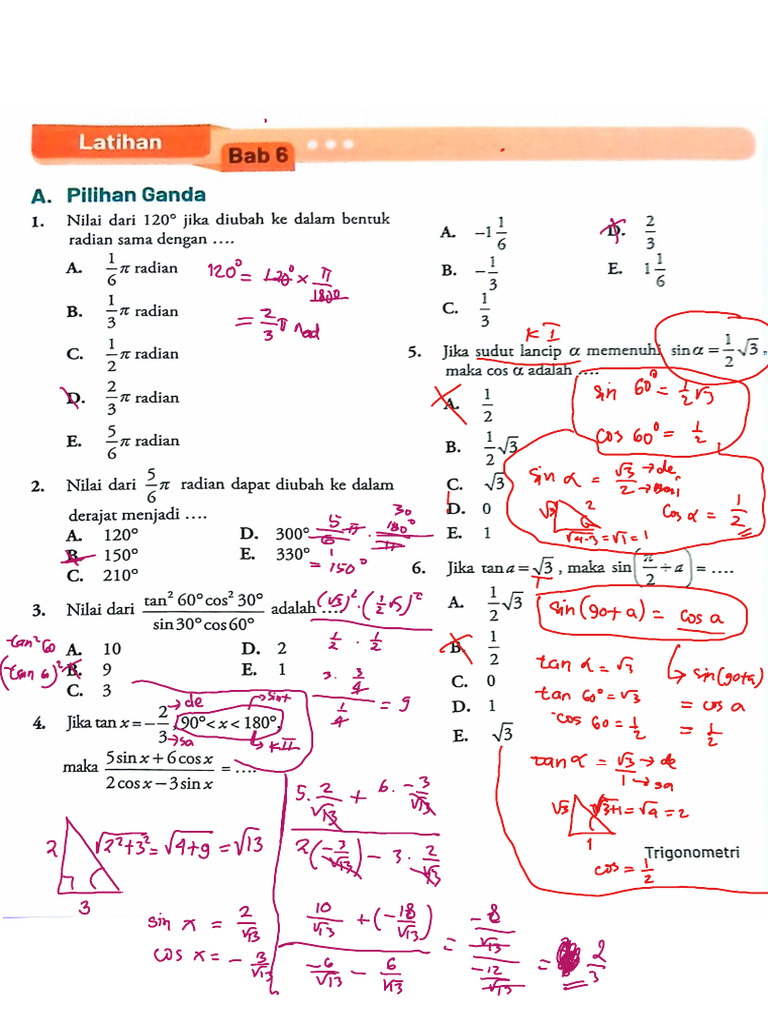 Latihan
Bab 6
A. Pilihan Ganda
1. Nilai dari 120° jika diubah ke dalam bentuk
radian sama dengan ....
A. 1/6 π radian
B. 1/3 π radian
C. 1/2 π radian
D. 2/3 π radian
E. 5/6 π radian
120° = 120° × π/180°
= 2/3 π rad
2. Nilai dari 5/6 π radian dapat diubah ke dalam
derajat menjadi ....
A. 120° D. 300°
B. 150° E. 330°
C. 210°
5π/6 · 180°/π 30
= 150°
3. Nilai dari tan² 60° cos² 30° / sin 30° cos 60° adalah ....
A. 10 D. 2
B. 9 E. 1
C. 3
tan² 60
(tan 6)²
(√3)² · (1/2 √3)²
1/2 · 1/2
3 · 3/4
1/4 = 9
4. Jika tan x = −2/3, 90° < x < 180°,
→ de
→ sa
→ sin +
→ K II
maka 5 sin x + 6 cos x / 2 cos x − 3 sin x = ....
2 √2²+3² = √4+9 = √13
3
sin x = 2/√13
cos x = − 3/√13
5 · 2/√13 + 6 · −3/√13
2(−3/√13) − 3 · 2/√13
10/√13 + (−18/√13)
−6/√13 − 6/√13
= −8/√13 / −12/√13 = 2/3
A. −1 1/6 D. 2/3
B. −1/3 E. 1 1/6
C. 1/3
K I
5. Jika sudut lancip α memenuhi sin α = 1/2 √3,
maka cos α adalah ....
A. 1/2
B. 1/2 √3
C. √3
D. 0
E. 1
sin 60° = 1/2 √3
cos 60° = 1/2
sin α = √3/2 → de
√3 2
√4-3 = √1 = 1
cos α = 1/2
6. Jika tan a = √3, maka sin (π/2 ÷ a) = ....
A. 1/2 √3
B. 1/2
C. 0
D. 1
E. √3
sin (90 + a) = cos a
↳ sin (90+a)
= cos a
= 1/2
tan α = √3
tan 60° = √3
cos 60 = 1/2
tan α = √3/1 → de
→ sa
√3 √3+1 = √4 = 2
1
cos = 1/2
Trigonometri